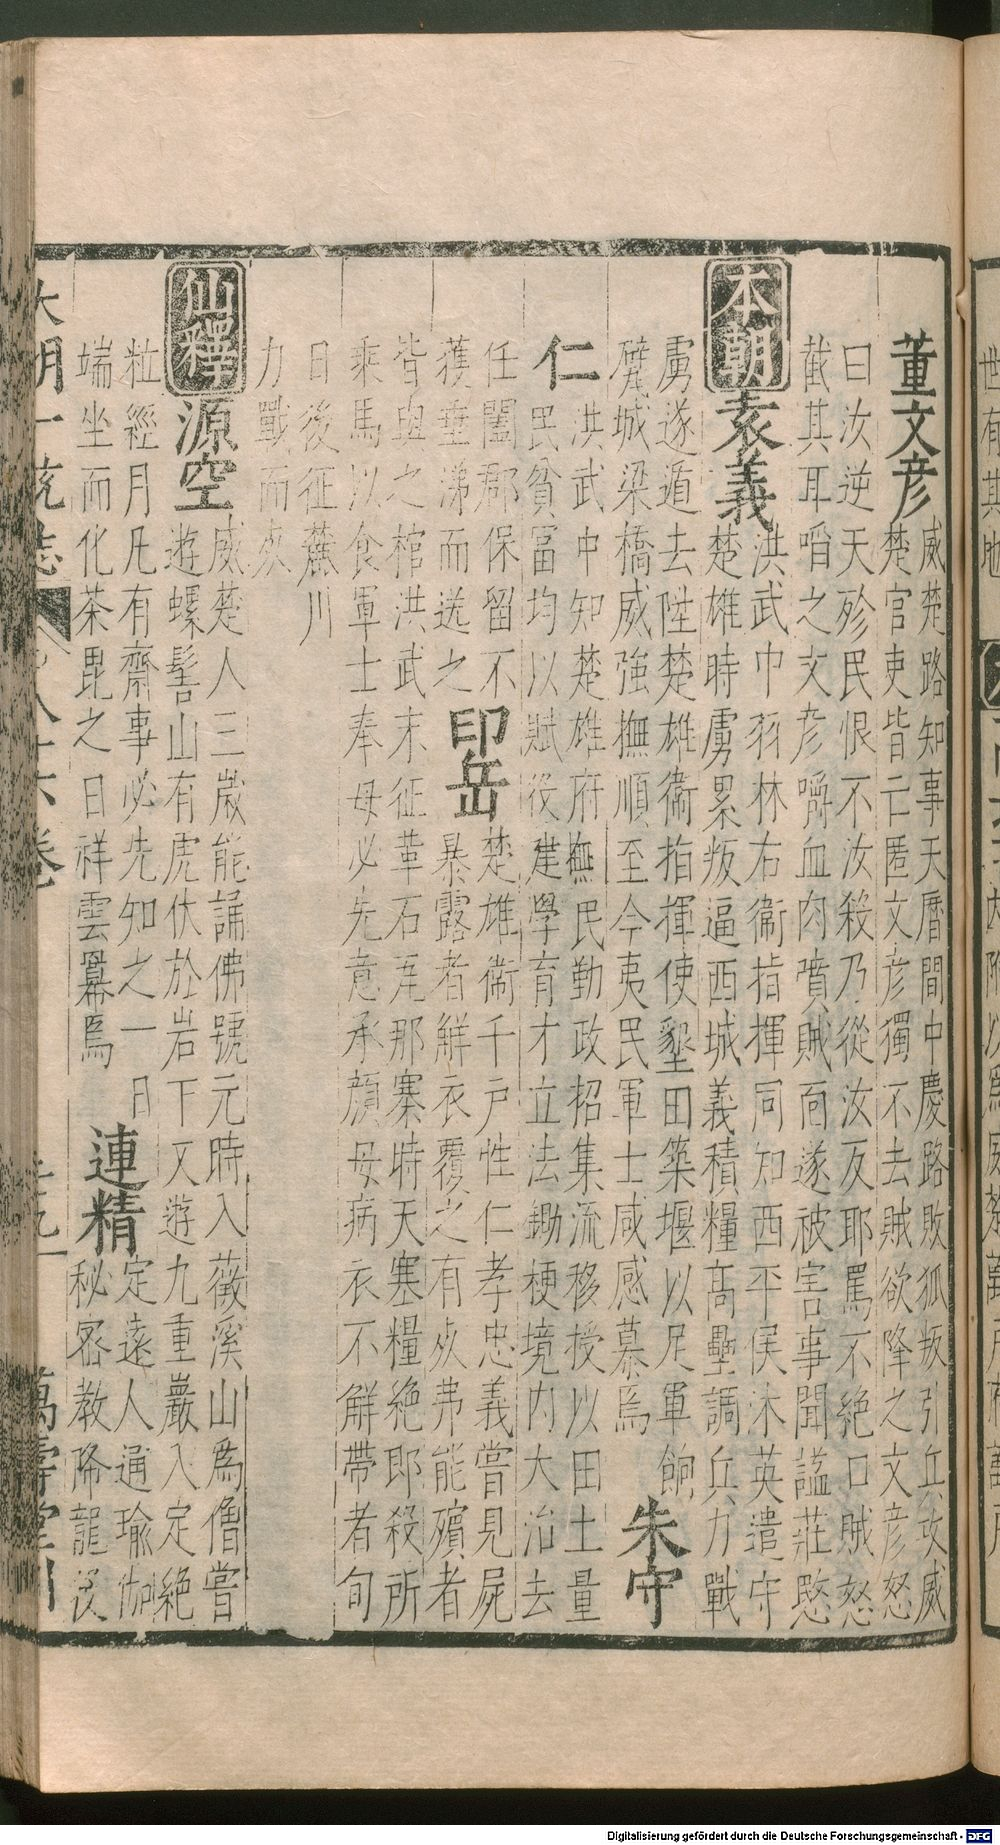 董文彦威楚路知事天曆間中慶路敗狐叛引兵攻威
楚官吏皆亡匿文彦獨不去賊欲降之文彦怒
曰汝逆天殄民恨不汝殺乃從汝反耶罵不絶口賊怒
截其耳㗖之文彦嚼血肉噴賊面遂被害事聞謚莊愍
本朝袁義洪武中羽林右衞指揮同知西平侯沐英遣守
楚雄時虜累叛逼西城義積糧高壘調兵力戰
虜遂遁去陞楚雄衞指揮使墾田築堰以足軍餉
甓城梁橋威強撫順至今夷民軍士咸感慕焉朱守
仁洪武中知楚雄府撫民勤政招集流移授以田土量
民貧富均以賦役建學育才立法鋤梗境内大治去
任闔郡保留不獲垂涕而送之印岳楚雄衞千戸性仁孝忠義嘗見屍
暴露者解衣覆之有死弗能殯者
皆與之棺洪武末征革石尾那寨時天寒糧絶即殺所
乘馬以食軍士奉母必先意承顔母病衣不解帶者旬
日後征麓川
力戰而死
仙釋源空威楚人三歲能誦佛號元時入薇溪山爲僧嘗
遊螺髻山有虎伏於岩下又遊九重巖入定絶
粒經月凡有齋事必先知之一日
端坐而化茶毘之日祥雲羃焉連精定遠人通瑜伽
秘密教降龍
大明一統志
卷
萬壽堂刊
Digitalisierung gefördert durch die Deutsche Forschungsgemeinschaft - DFG